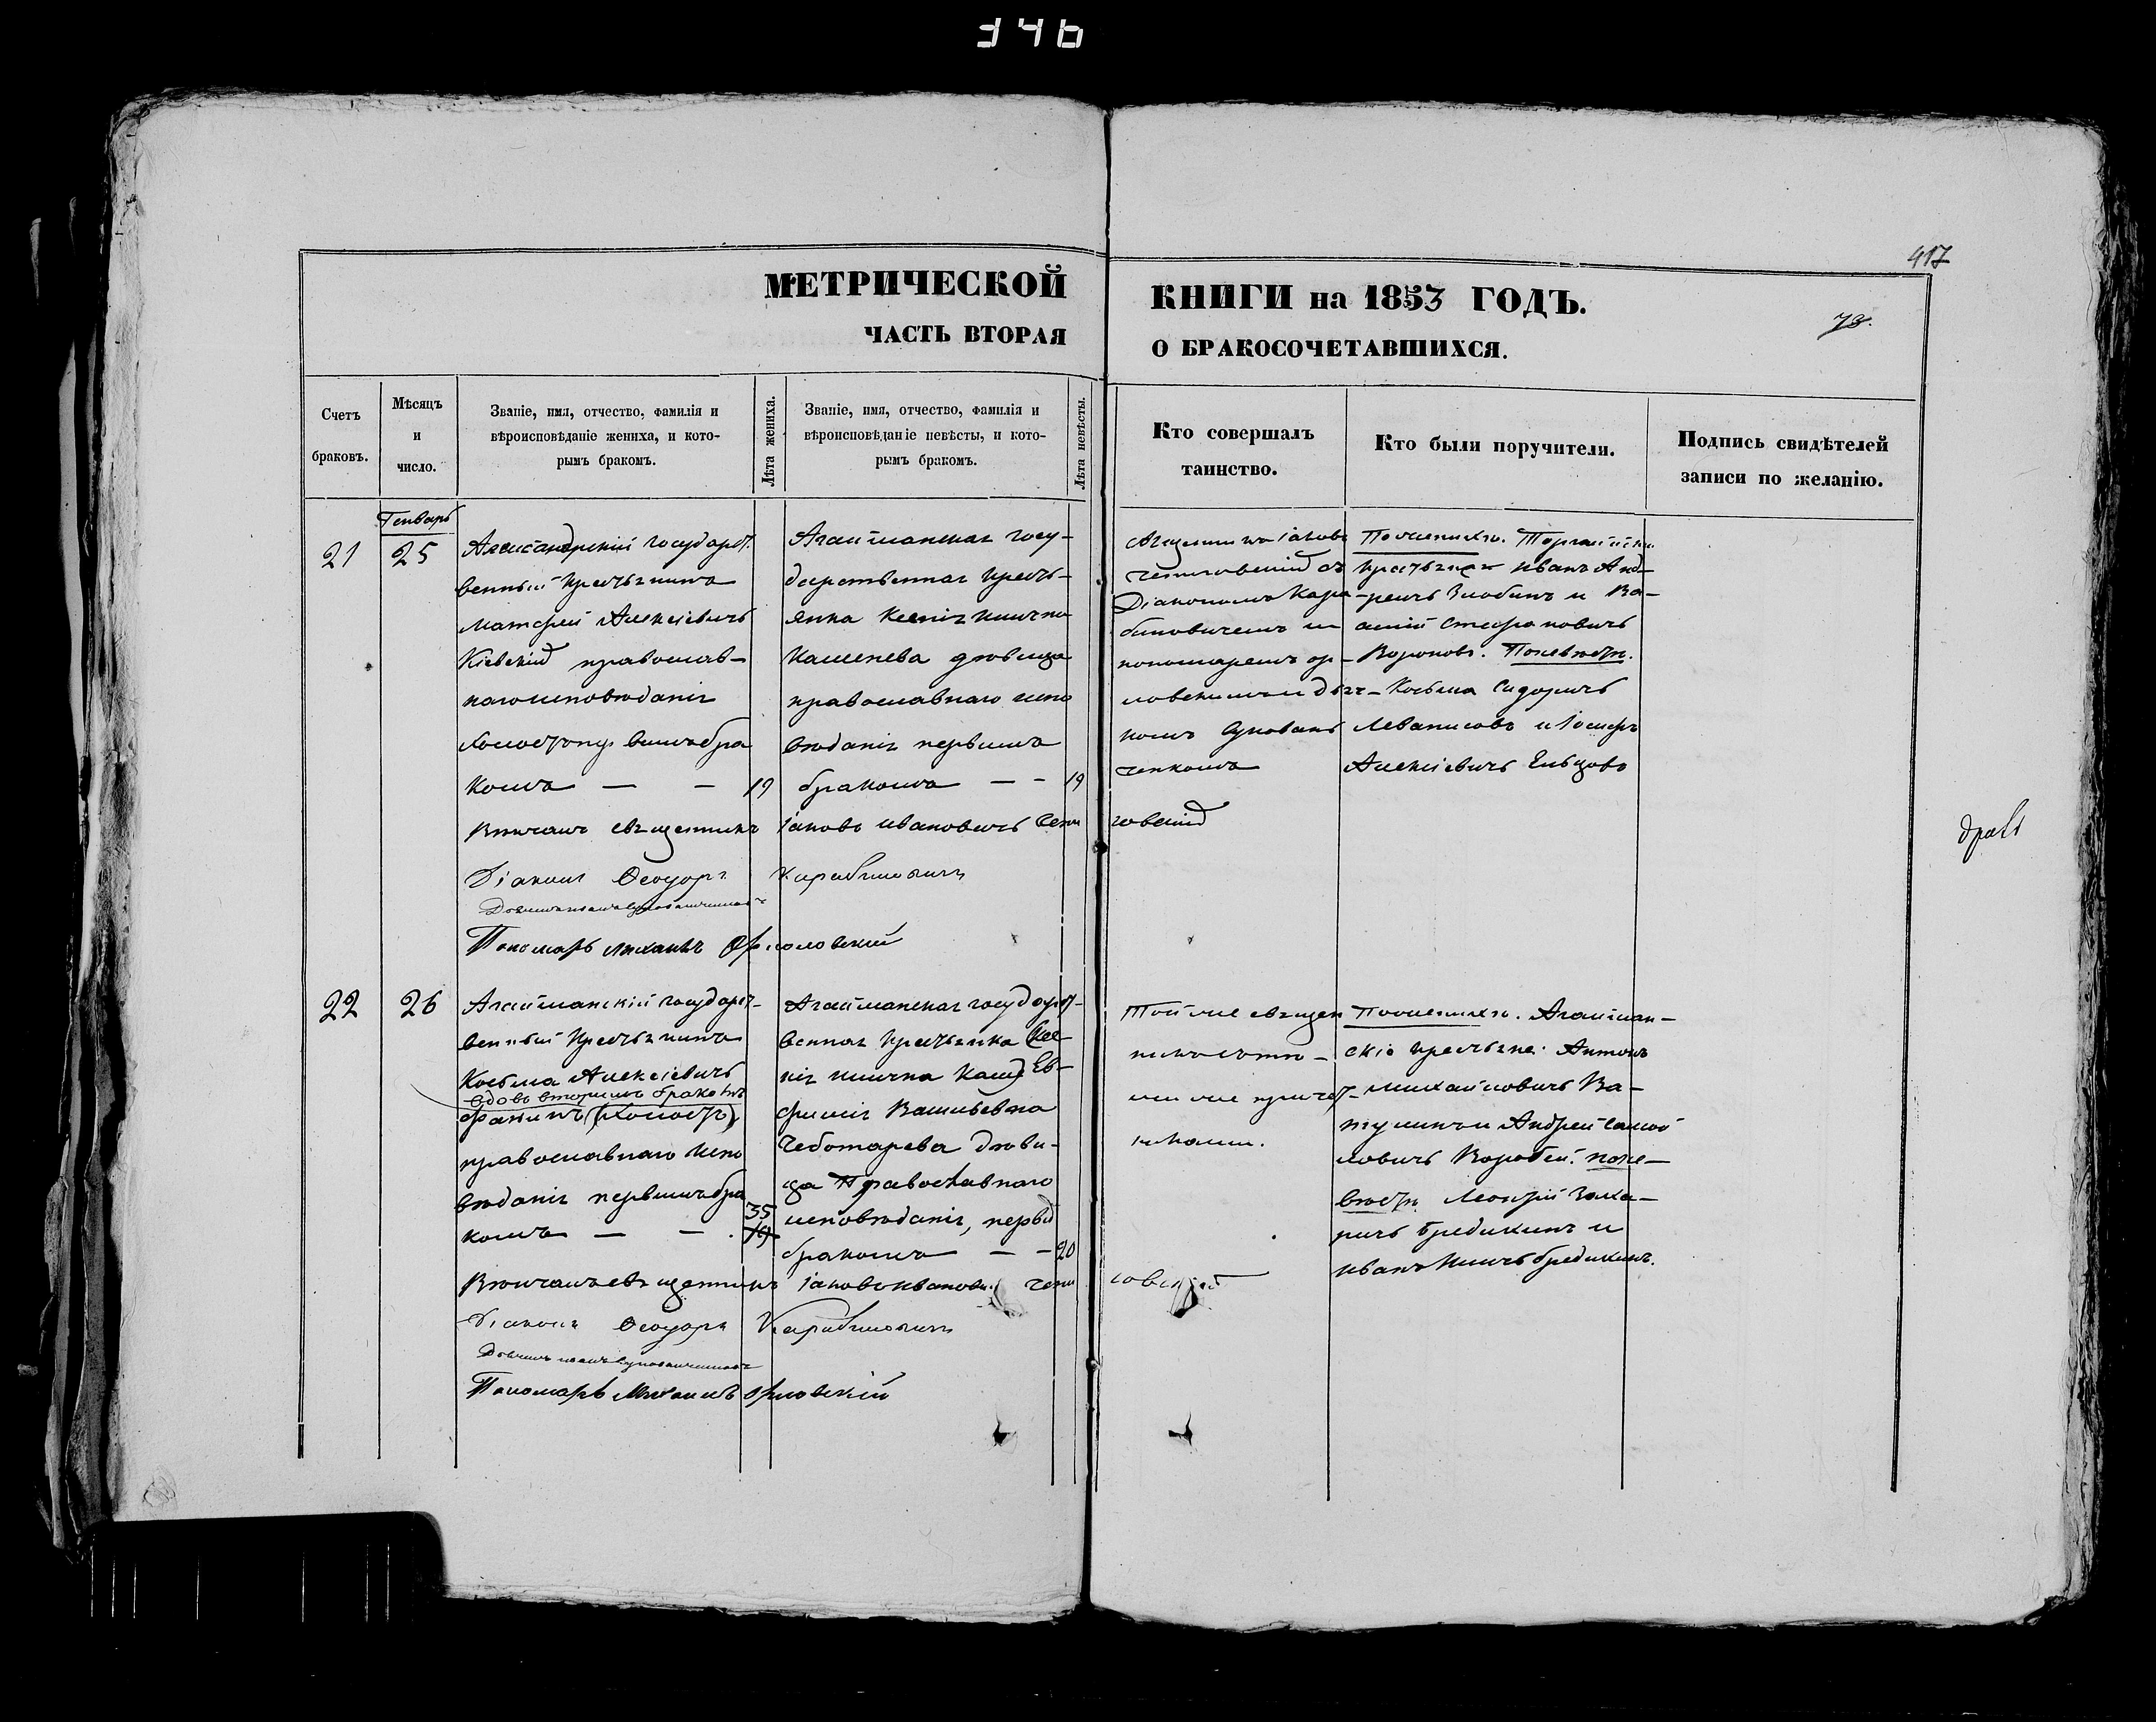 346
417
МЕТРИЧЕСКОЙ КНИГИ на 1853 ГОДЪ.
78.
ЧАСТЬ ВТОРАЯ О БРАКОСОЧЕТАВШИХСЯ.
Счетъ
браковъ.
Мѣсяцъ
и
число.
Званіе, имя, отчество, фамилія и
вѣроисповѣданіе жениха, и кото-
рымъ бракомъ.
Лѣта жениха.
Званіе, имя, отчество, фамилія и
вѣроисповѣданіе невѣсты, и кото-
рымъ бракомъ.
Лѣта невѣсты.
Кто совершалъ
таинство.
Кто были поручители.
Подпись свидѣтелей
записи по желанію.
21
Генварь
25
Александрскій государст-
венный крестьянинъ
Матфей Алексіевичъ
Кіевскій православ-
наго исповѣданія
холостъ первымъ бра
комъ — —
19
Агайманская госу-
дарственная кресть-
янка Ксенія Ильина
Кашенева дѣвица
православнаго испо
вѣданія первымъ
бракомъ — —
19
Священникъ Іаковъ
съ
Діакономъ Кара-
биновичемъ и
пономаремъ Ор-
ловскимъ и дья-
комъ
ченкомъ
По женихѣ. Торгайскіе
крестьяне Иванъ Анд-
реичъ Злобинъ и Ва-
силій Стефановичъ
Вороновъ. По невѣстѣ.
Косьма Сидоричъ
Леванисовъ и Іосифъ
Алексіевичъ Ельцовъ
Вѣнчалъ священникъ Іаковъ Ивановичъ
Діаконъ Ѳеодоръ Карабиновичъ
Пономарь Михаилъ Орловскій
драв
22
26
Агайманскій государст-
венный крестьянинъ
Косьма Алексіевичъ
вдовъ вторымъ бракомъ
Фанинъ (холостъ)
православнаго испо
вѣданія первымъ бра
комъ — —
35
19
Агайманская государст-
венная крестьянка (Ксе-
нія Ильина Каш) Ев-
фимія Васильевна
Чеботарева дѣви-
ца Православнаго
исповѣданія, первы
бракомъ — —
20
Той же священ
никъ съ тѣ-
ми же причет-
никами.
По женихѣ. Агайман-
скіе крестьяне: Антонъ
Михайловичъ Ва-
тулинъ и Андрей Самой
ловичъ Воробей. По не-
вѣстѣ. Леонтій Заха-
ричъ Бредихинъ и
Иванъ Ильичъ Бредихинъ.
Вѣнчалъ священникъ Іаковъ Иванови.
Діаконъ Ѳеодоръ Карабиновичъ
Пономарь Михаилъ Орловскій